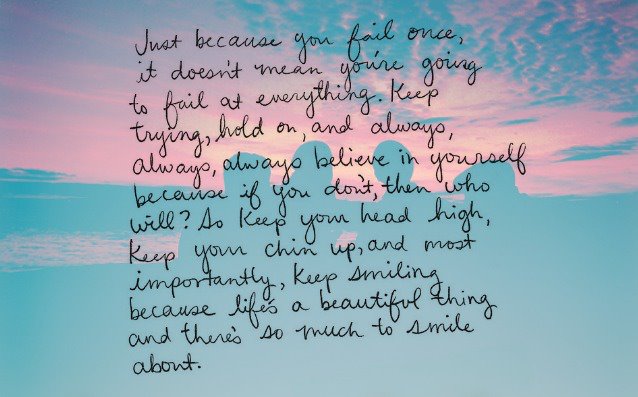 Just because you fail once,
it doesn't mean you're going
to fail at everything. Keep
trying, hold on, and always,
always, always believe in yourself
because if you don't, then who
will? So keep your head high,
keep your chin up, and most
importantly, keep smiling
because life's a beautiful thing
and there's so much to smile
about.